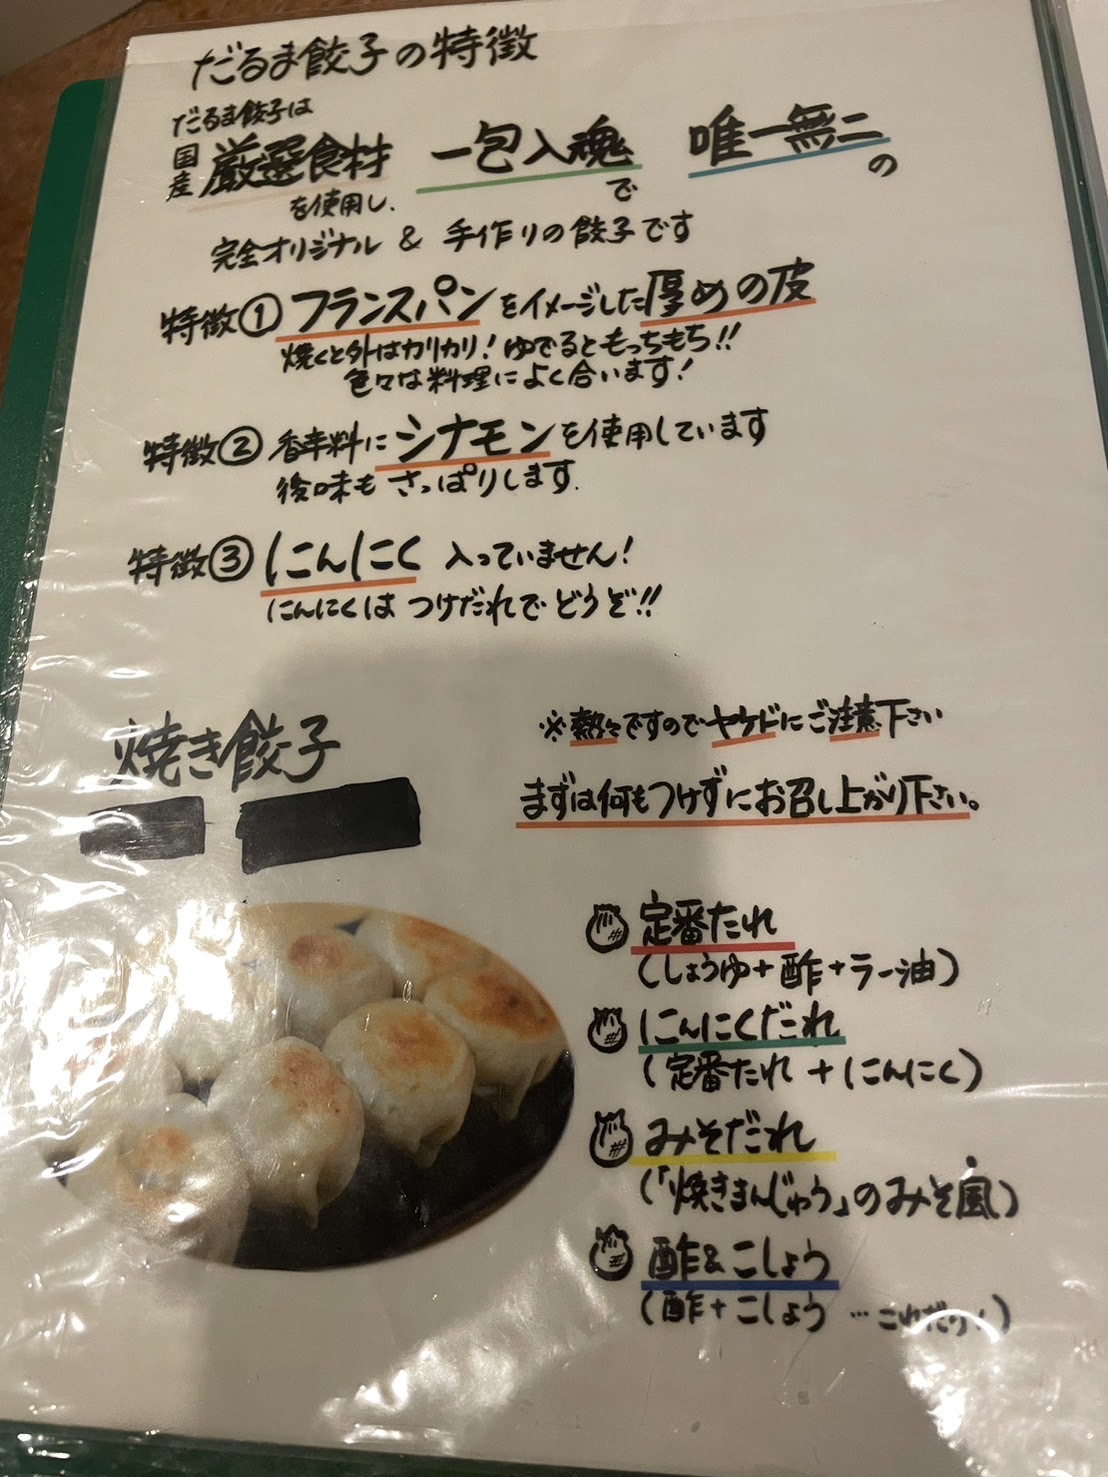 だるま餃子の特徴
だるま餃子は
国産厳選食材 一包入魂 唯一無二
を使用し、 で の
完全オリジナル & 手作りの餃子です
特徴① フランスパンをイメージした厚めの皮
焼くと外はカリカリ!ゆでるともっちもち!!
色々な料理によく合います!
特徴② 香辛料にシナモンを使用しています
後味もさっぱりします.
特徴③ にんにく 入っていません!
にんにくは つけだれで どうぞ!!
焼き餃子
※熱々ですのでヤケドにご注意下さい
まずは何もつけずにお召し上がり下さい。
定番たれ
(しょうゆ+酢+ラー油)
にんにくだれ
(定番たれ+にんにく)
みそだれ
(「焼きまんじゅう」のみそ風)
酢&こしょう
(酢+こしょう …これだけ!)